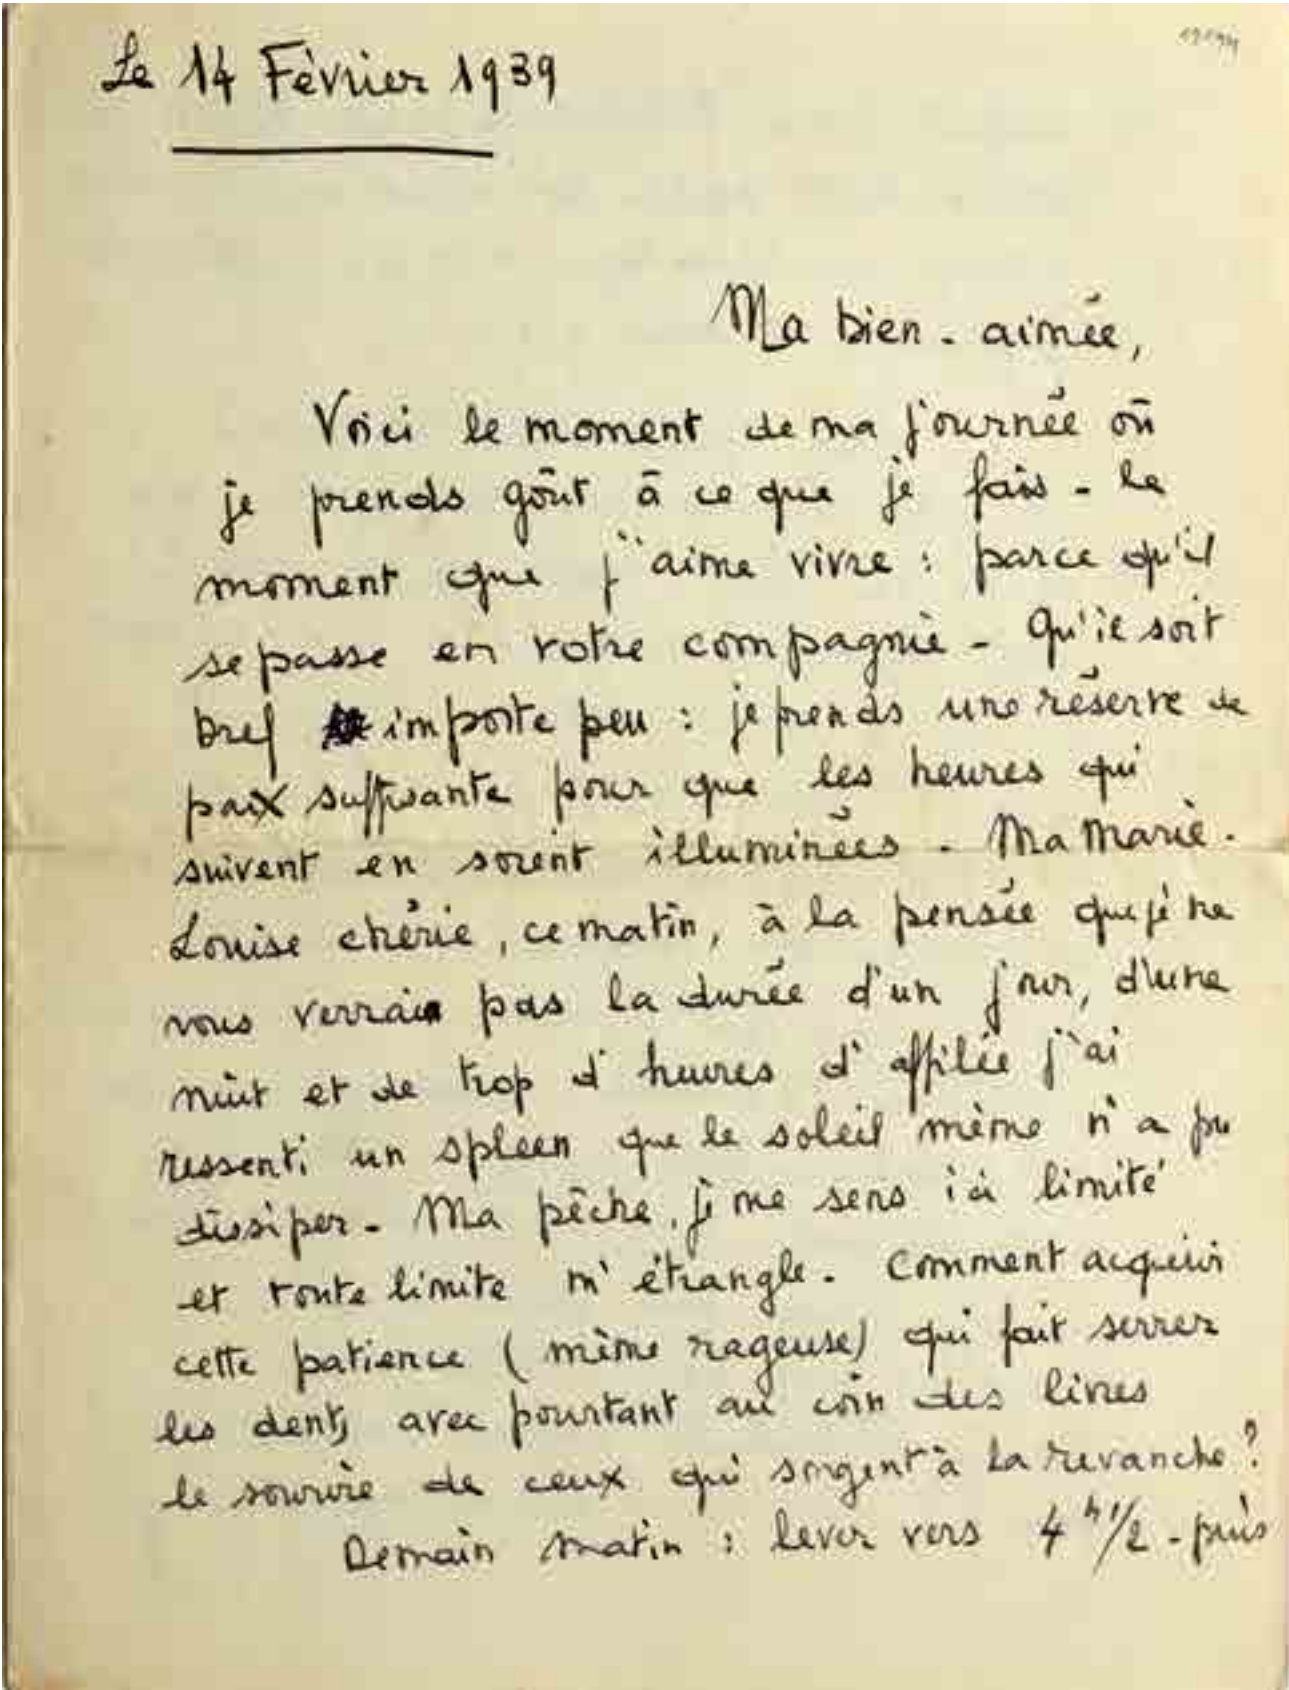 Le 14 Février 1939
Ma bien-aimée,
Voici le moment de ma journée où
je prends goût à ce que je fais - le
moment que j'aime vivre : parce qu'il
se passe en votre compagnie - Qu'il soit
bref importe peu : je prends une réserve de
paix suffisante pour que les heures qui
suivent en soient illuminées - Ma Marie-
Louise chérie, ce matin, à la pensée que je ne
vous verrais pas la durée d'un jour, d'une
nuit et de trop d'heures d'affilée j'ai
ressenti un spleen que le soleil même n'a pu
dissiper - Ma pêche, je me sens ici limité
et toute limite m'étrangle - Comment acquérir
cette patience (même rageuse) qui fait serrer
les dents avec pourtant au coin des lèvres
le sourire de ceux qui songent à la revanche ?
Demain matin : lever vers 4 h 1/2 - puis